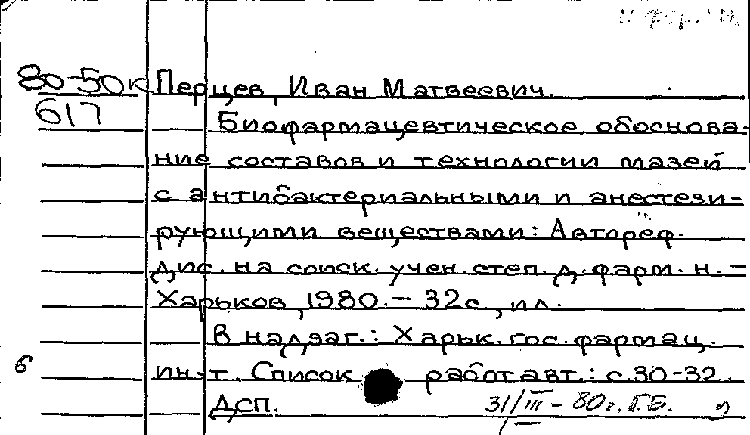 80-50к Перцев, Иван Матвеевич.
617 Биофармацевтическое обоснова-
ние составов и технологии мазей
с антибактериальными и анестези-
рующими веществами: Автореф.
дис. на соиск. учен. степ. д. фарм. н. –
Харьков, 1980. – 32с., ил.
В надзаг.: Харьк. гос. фармац.
б ин-т. Список работ авт.: с. 30-32.
ДСП. 31/III – 80г.